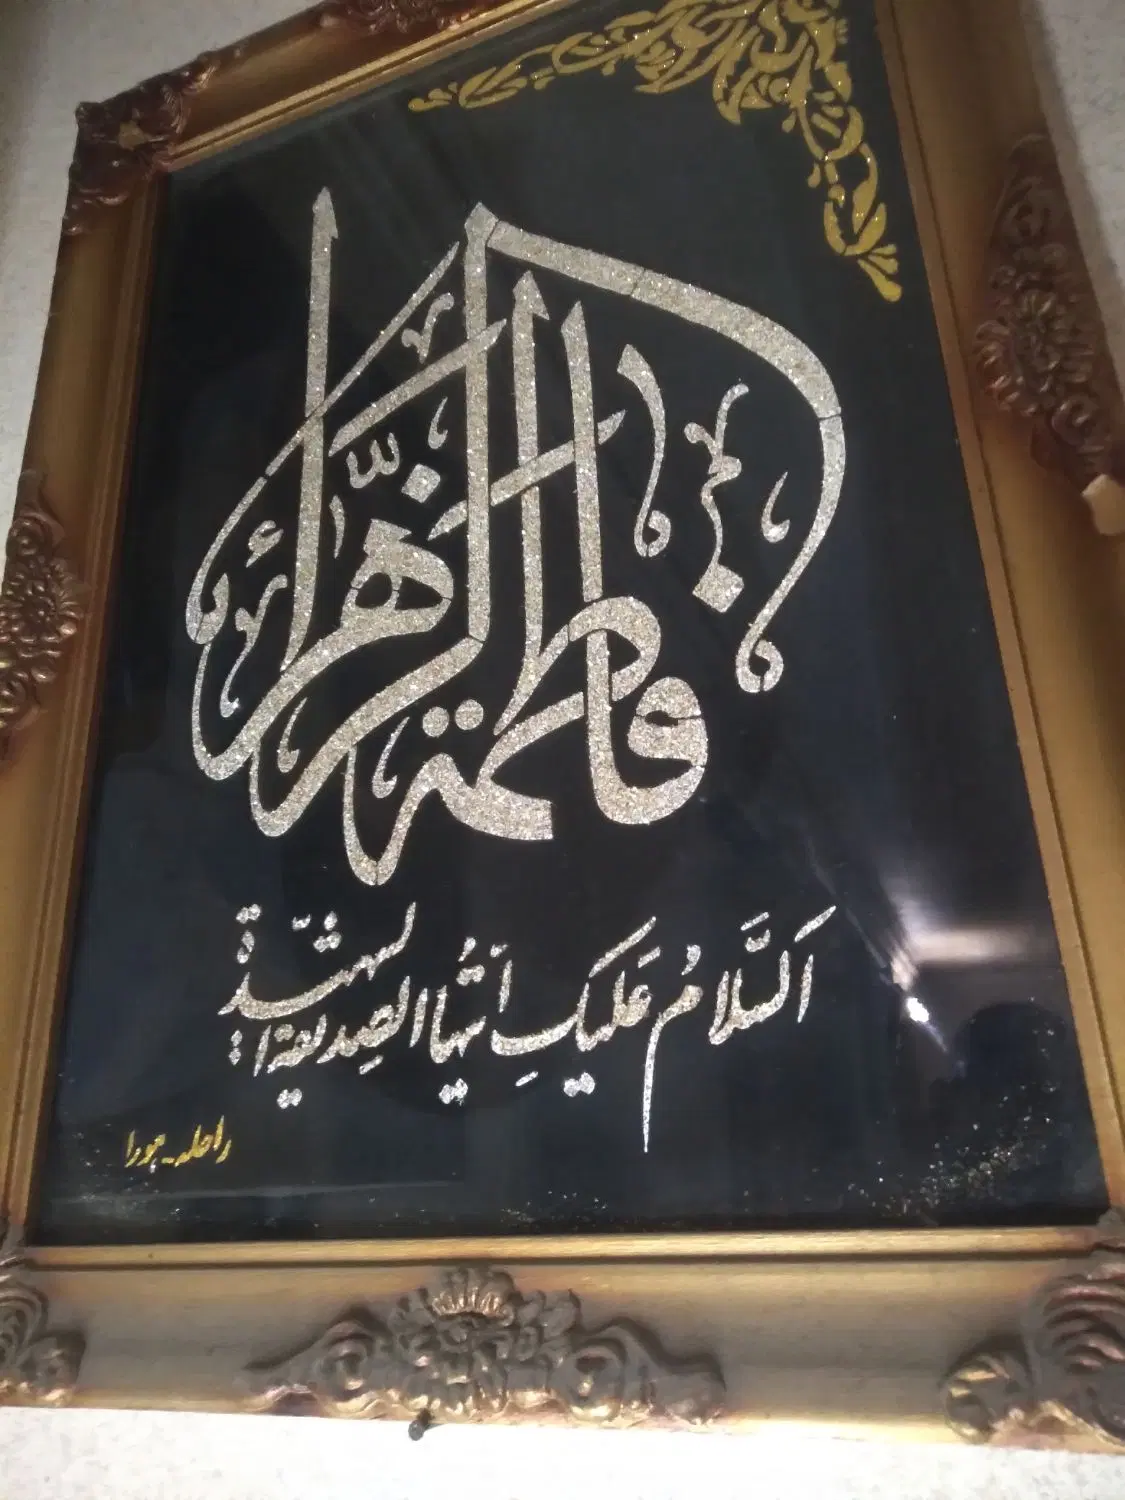 فاطمة الزهراء
اَلسَّلامُ عَلَيكِ اَيَّتُهَا الصِديقة الشهيدة
راحله-حورا